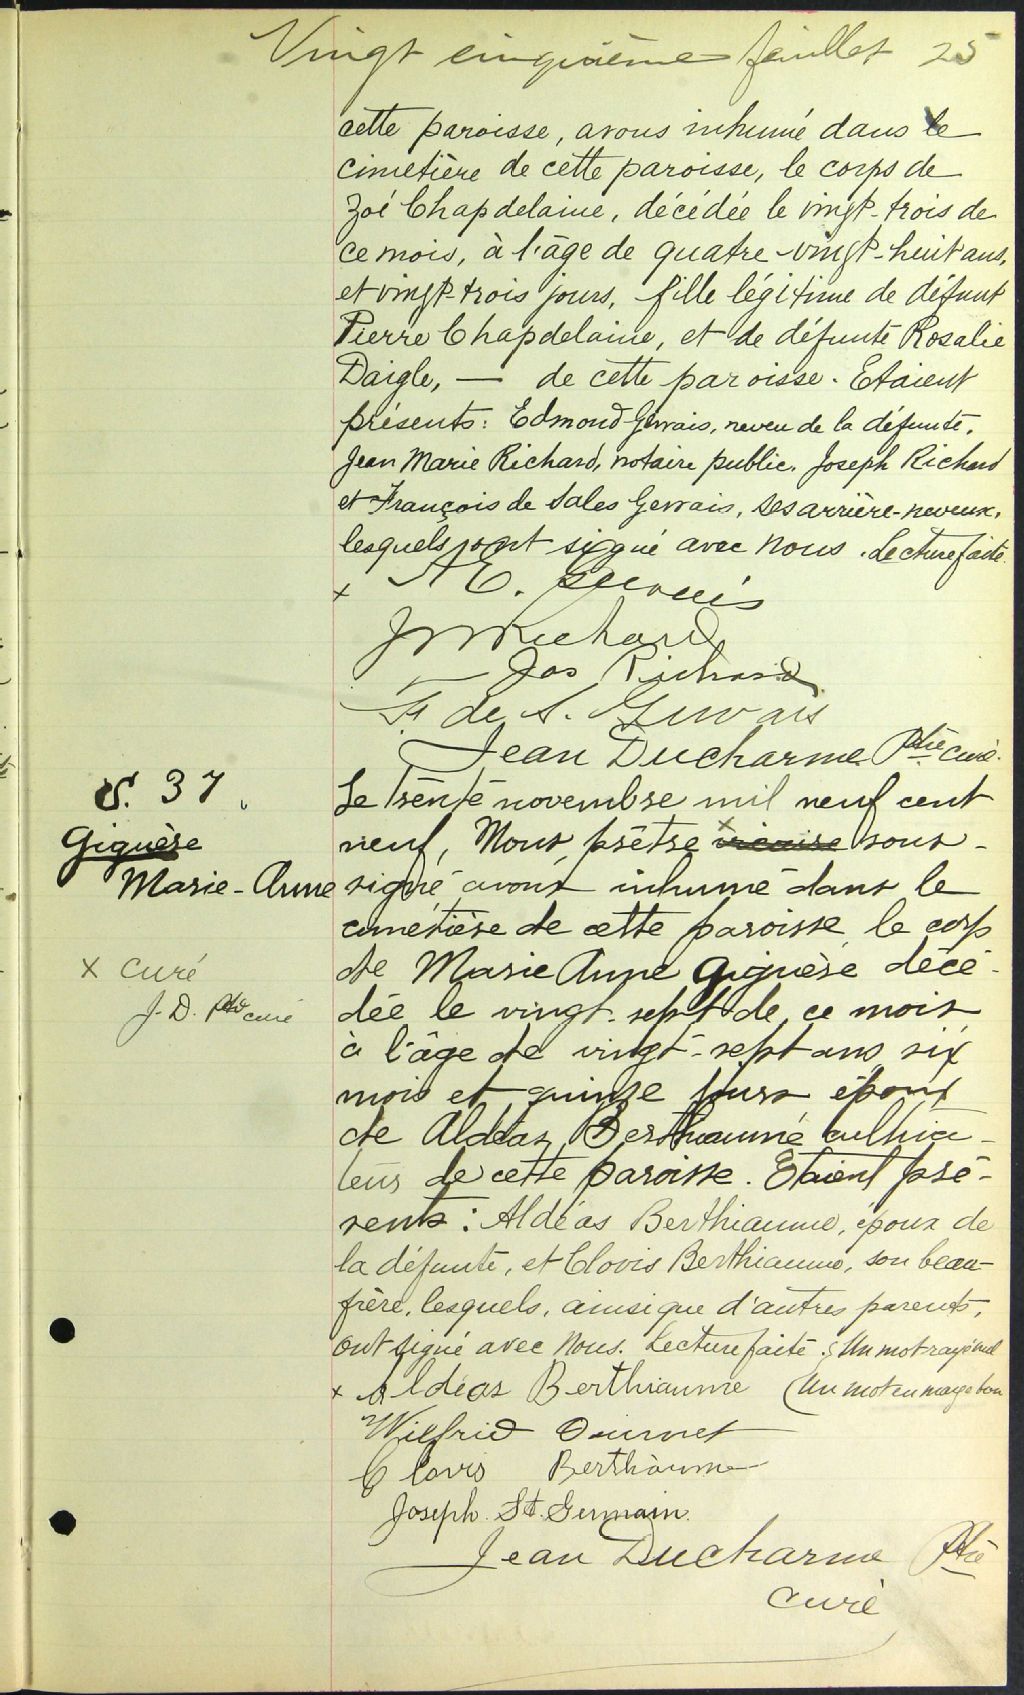 Vingt cinquième feuillet 25
cette paroisse, avons inhumé dans le
cimetière de cette paroisse, le corps de
Zoé Chapdelaine, décédée le vingt-trois de
ce mois, à l'âge de quatre-vingt-huit ans,
et vingt-trois jours, fille légitime de défunt
Pierre Chapdelaine, et de défunte Rosalie
Daigle, — de cette paroisse. Etaient
présents: Edmond Gervais, neveu de la défunte,
Jean Marie Richard, notaire public, Joseph Richard
et François de Sales Gervais, ses arrière-neveux,
lesquels ont signé avec nous. Lecture faite.
x E. Gervais
J M Richard
Jos Richard
F. de S. Gervais
Jean Ducharme Ptre curé.
S. 37.
Giguère
Marie-Anne
x curé
J. D. Ptre curé
Le trente novembre mil neuf cent
neuf, Nous, prêtre x vicaire sous-
signé avons inhumé dans le
cimetière de cette paroisse le corp
de Marie Anne Giguère décé-
dée le vingt-sept de ce mois
à l'âge de vingt-sept ans six
mois et quinze jours époux
de Aldéas Berthiaume cultiva-
teur de cette paroisse. Etaient pré-
sents: Aldéas Berthiaume, époux de
la défunte, et Clovis Berthiaume, son beau-
frère, lesquels, ainsi que d'autres parents,
ont signé avec nous. Lecture faite. Un mot rayé nul
x Aldéas Berthiaume Un mot en marge bon
Wilfrid Ouimet
Clovis Berthiaume
Joseph St. Germain
Jean Ducharme Ptre
curé